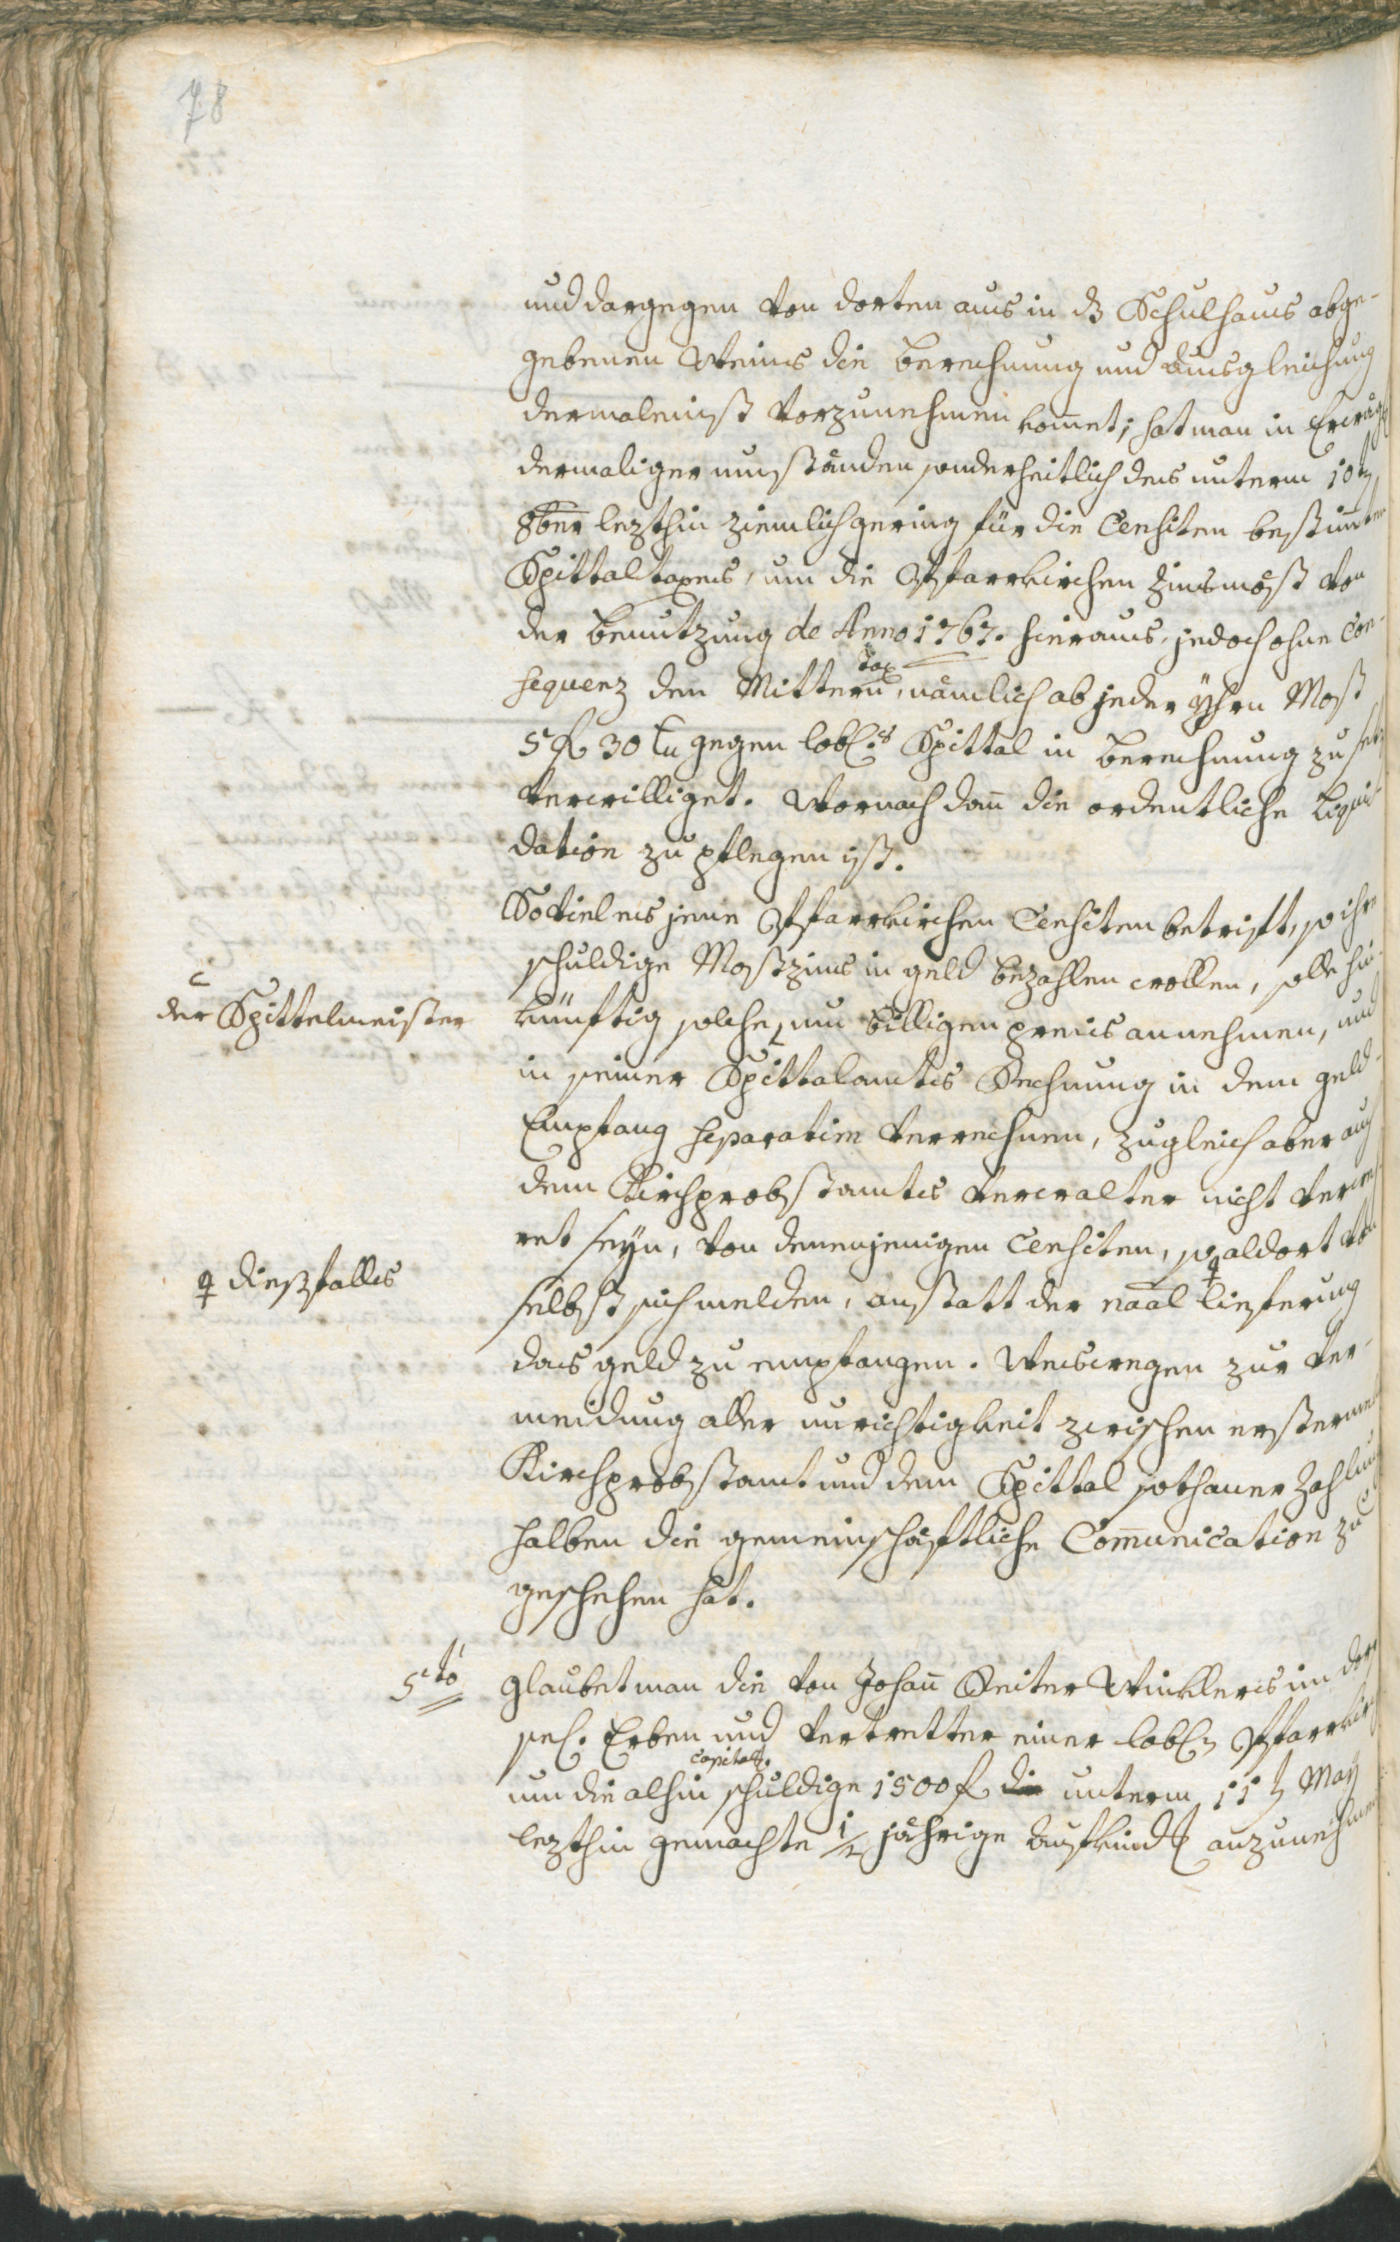 78
und dargegen von dorten aus in dz Schulhaus abge-
gebenen Weins die berechnung und Ausgleichung
dermaleinst vorzunehmen kom̄et; hat man in
dermaliger umständen sonderheitlich des unterm 10t
8ber lezthin ziemlich gering für die Censiten bestim̄ten
Spittaltaxes, um die Pfarrkirchen Zinsmost von
der benutzung de Anno 1767. hieraus, jedoch ohne Con-
sequenz den Mittern Tax, nämlich ab jeder Yhrn Most
5 f 30 xr gegen lobl.s Spittal in berechnung zu
verwilliget. Wornach dan̄ die ordentliche Liqui-
dation zu pflegen ist.
So viel es jene Pfarrkirchen Censiten betrift, so ihre
schuldige Mostzins in geld bezahlen wollen, solle hin-
der Spittelmeister
künftig solche um billigen preis annehmen, und
in seiner Spittalamts Rechnung in dem geld-
Empfang separatim verrechnen, zugleich aber auch
dem Kirchprobstamts verwalter nicht verweh
ret seyn, von denenjenigen Censiten, so aldort
dießfalls
selbst sich melden, anstatt der naal lieferung
das geld zu empfangen. Weswegen zur ver-
meidung aller unrichtigkeit zwischen ersterm
Kirchprobstamt und dem Spittal sothaner Zahlung
halben die gemeinschäftliche Com̄unication zu
geschehen hat.
5to glaubet man die von Johan̄ Reiter Winklers im dorf
sel. Erben und vertretter einer lobl. Pfarrkirch
um die alhin schuldige capital. 1500 f die unterm 11t May
lezthin gemachte 1/2 jährige Aufkündt anzunehmen